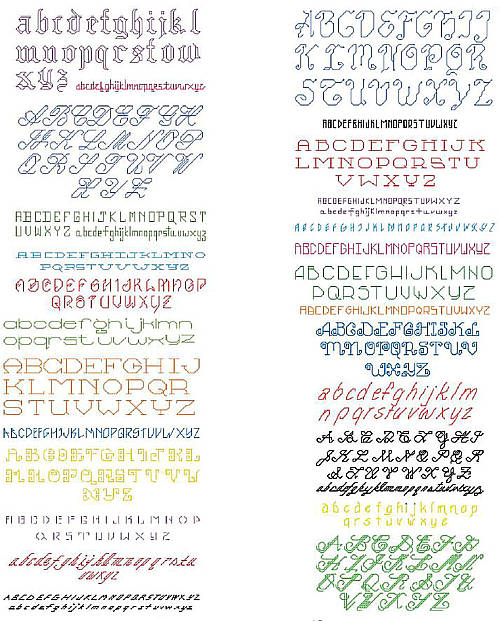 abcdefghijkl
mnopqrstuvw
xyz abcdefghijklmnopqrstuvwxyz
ABCDEFGH
IJKLMNOP
QRSTUVW
XYZ
ABCDEFGHIJKLMNOPQRST
UVWXYZ abcdefghijklmnopqrstuvwxyz
ABCDEFGHIJKLMNO
PQRSTUVWXYZ
ABCDEFGHIJKLMNOP
QRSTUVWXYZ
abcdefghijklmn
opqrstuvwxyz
ABCDEFGHIJ
KLMNOPQR
STUVWXYZ
ABCDEFGHIJKLMNOPQRSTUVWXYZ
ABCDEFGHIJKL
MNOPQRSTUV
WXYZ
ABCDEFGHIJKLMNOP
QRSTUVWXYZ
abcdefghijklmnopqrstu
vwxyz
ABCDEFGHIJKLMNOPQRSTUVWXYZ
abcdefghijklmnopqrstuvwxyz
ABCDEFGHIJ
KLMNOPQR
STUVWXYZ
ABCDEFGHIJKLMNOPQRSTUVWXYZ
ABCDEFGHIJK
LMNOPQRSTU
VWXYZ
ABCDEFGHIJKLMNOPQRSTUVWXYZ
abcdefghijklmnopqrstuvwxyz
ABCDEFGHIJKLMNOPQRSTUVWXYZ
ABCDEFGHIJKLMNOPQRSTUVWXYZ
ABCDEFGHIJKLMNO
PQRSTUVWXYZ
ABCDEFGHIJKLMNOPQRSTUVWXYZ
ABCDEFGHIJKL
MNOPQRSTUV
WXYZ
abcdefghijklm
nopqrstuvwxyz
ABCDEFGHI
JKLMNOPQR
STUVWXYZ
abcdefghijklmnopqrstuvwxyz
abcdefghijklmnop
qrstuvwxyz
ABCDEFGH
IJKLMN
OPQRSTU
VWXYZ